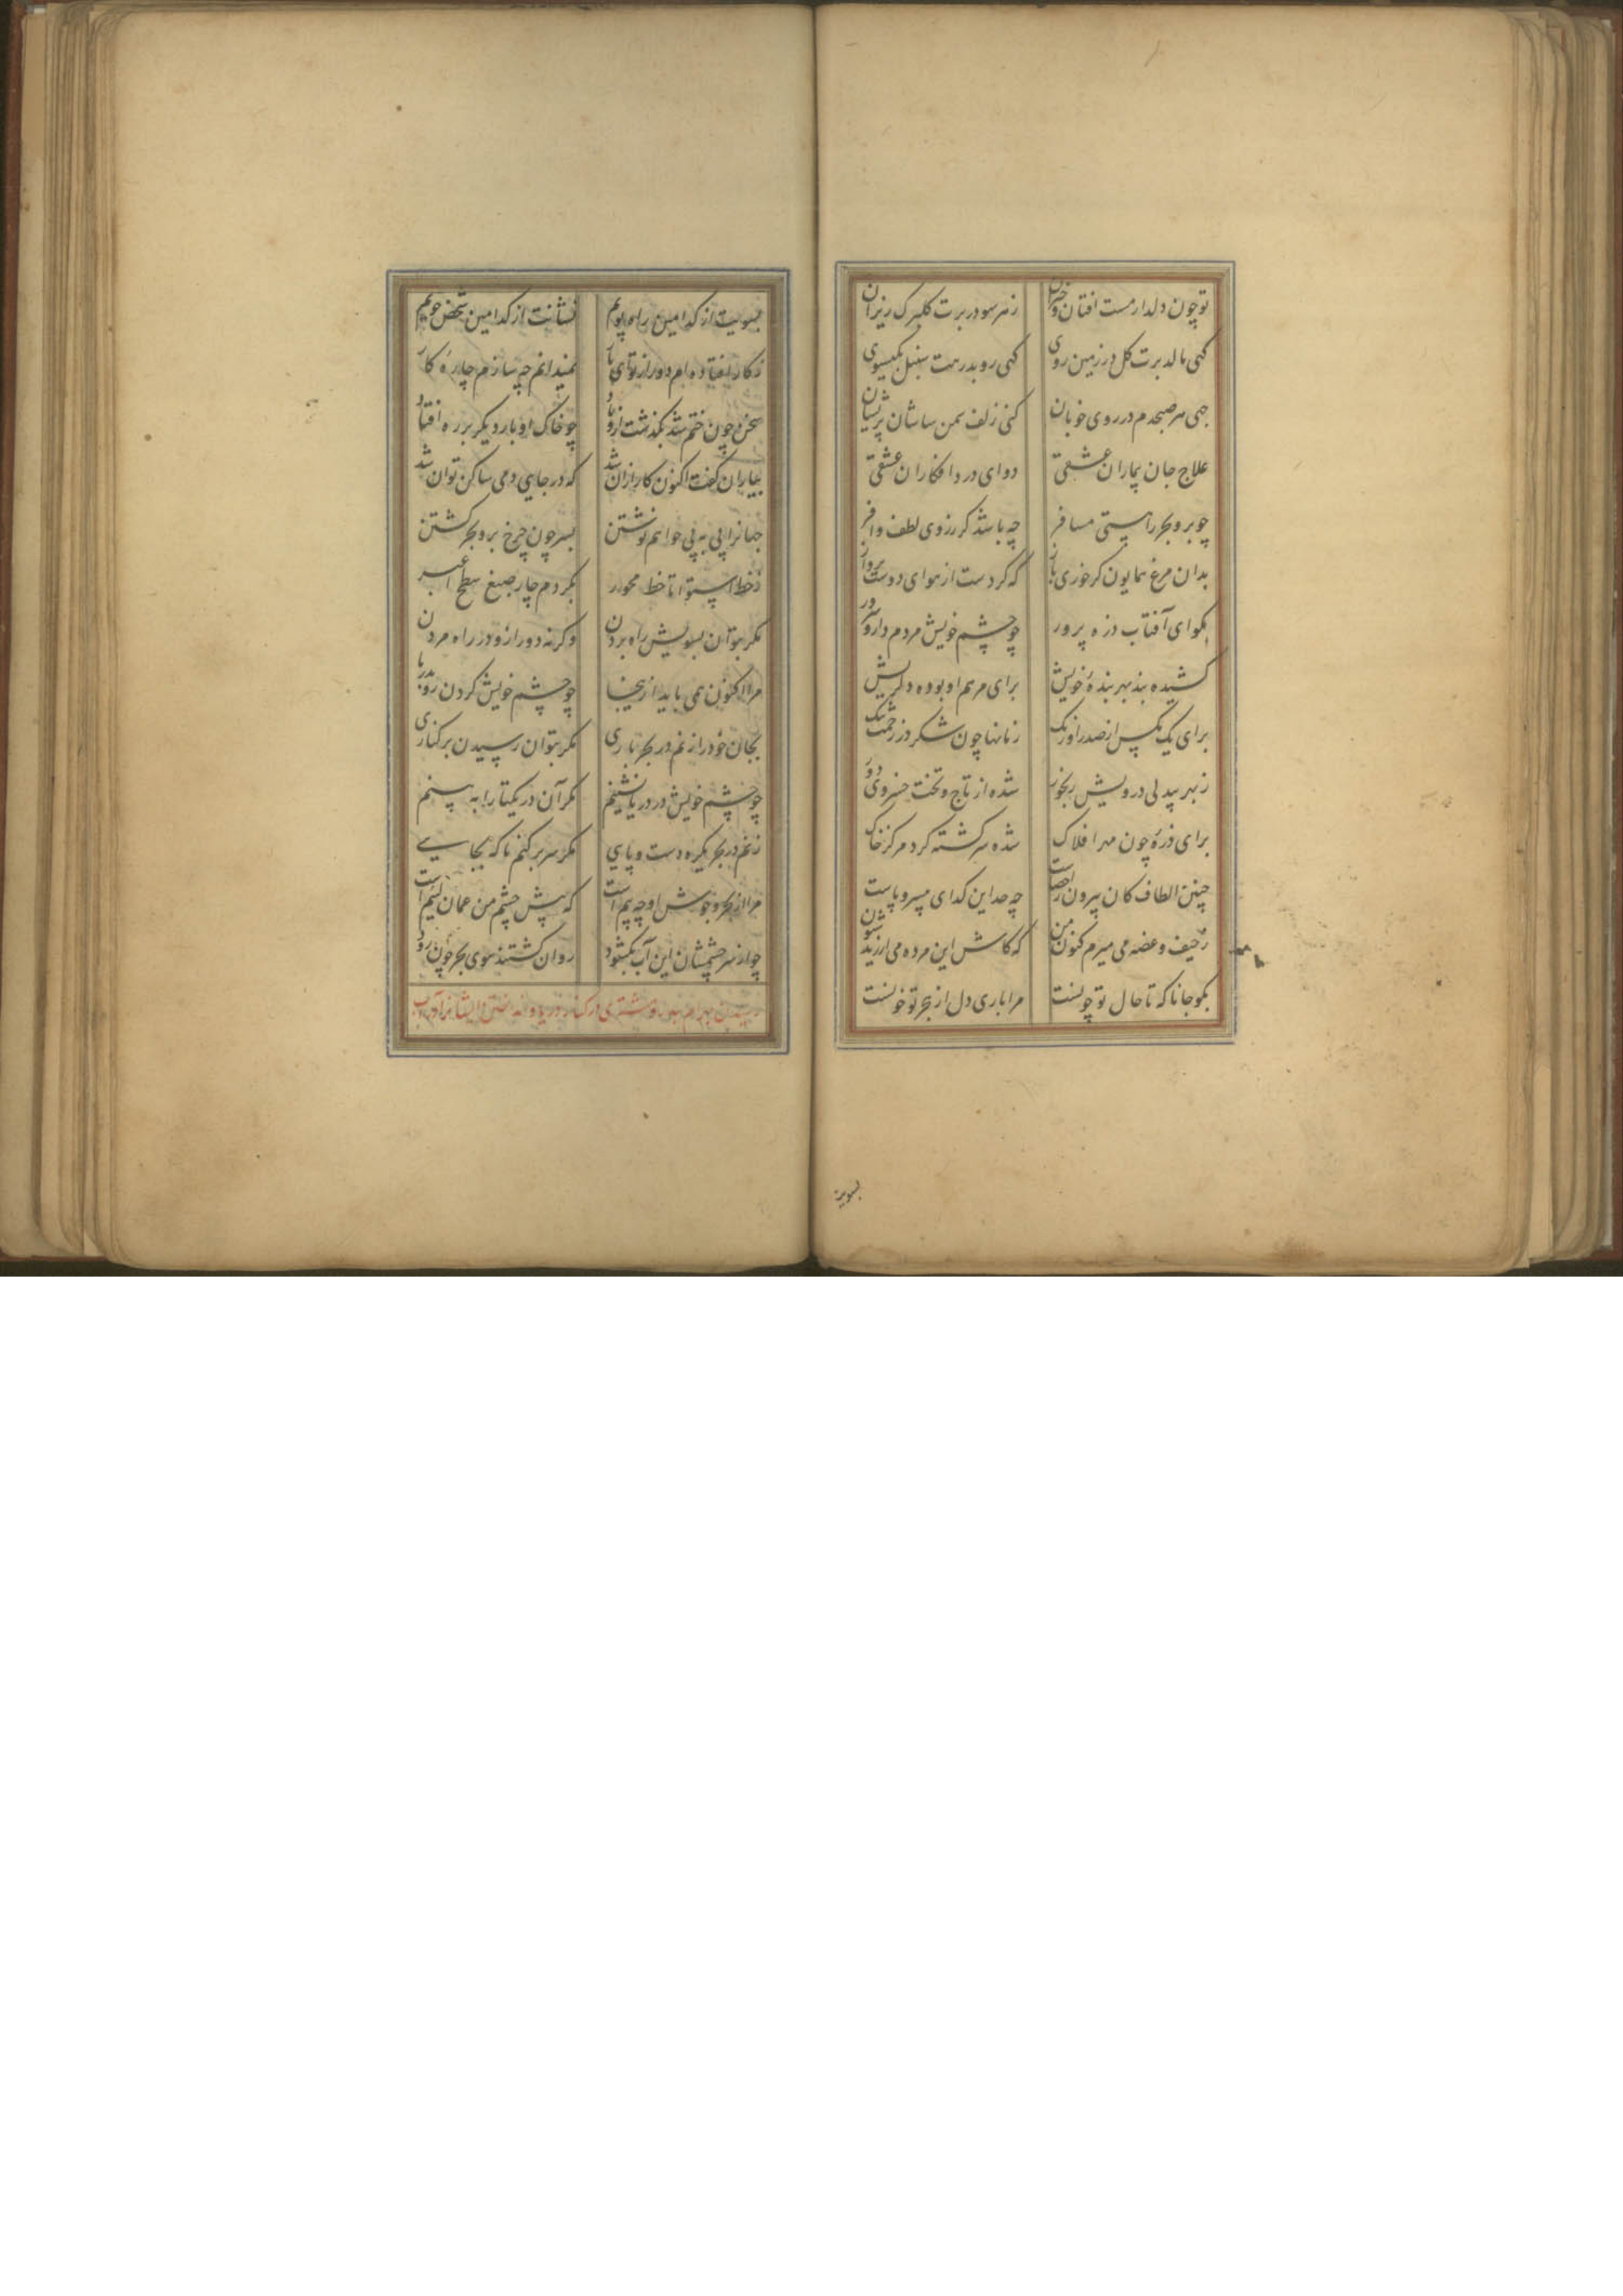 تو چون دلدار مست افتان و خیزان ز هر سو در برت کلبرک ریزان
کهی مالد برت کل در زمین روی کهی روبد رهت سنبل بکیسوی
جهی هر صبحدم در روی خوبان کنی زلف سمن ساشان پریشان
علاج جان بیماران عشقی دوای درد افکاران عشقی
چو بر و بحر راستی مسافر چه باشد کر ز روی لطف وافر
بدان مرغ همایون کر خوری باز که کردست از هوای دوست پرواز
بکو ای آفتاب ذره پرور چو چشم خویش مردم دار و سرور
کشیده بند بهر بندهٔ خویش برای مرهم او بوده دلریش
برای یک مکس از صدر اورنک زمانها چون شکر در زحمت تنک
ز بهر بیدلی درویش رنجور شده از تاج و تخت خسروی دور
برای ذرهٔ چون مهر افلاک شده سرکشته کرد مرکز خاک
چنین الطاف کان بیرون ز احصاست چه حد این کدای بیسر و پاست
ز حیف و غصه می میرم کنون من که کاش این مرده می ارزید شیون
بکو جانا که تا حال تو چونست مرا باری دل از هجر تو خونست
بسویت
بسویت از کدامین راه پویم نشانت از کدامین شخص جویم
ز کار افتاده ام دور از تو ای یار نمیدانم چه سازم چارهٔ کار
سخن چون ختم شد بکذشت ازو باد چو خاک او بار دیکر بر ره افتاد
بیاران کفت اکنون کار ازان شد که در جایی دمی ساکن توان شد
جهانرا پی به پی خواهم نوشتن بسر چون چرخ بر و بحر کشتن
ز خط استوا تا خط محور بکردم چار صبغ سطح اغبر
مکر بتوان بسویش راه بردن وکرنه دور ازو در راه مردن
مرا اکنون همی باید ازینجا چو چشم خویش کردن رو بدریا
بجان خود را زنم در بحر باری مکر بتوان رسیدن بر کناری
چو چشم خویش در دریا نشینم مکر آن در یکتا را به بینم
زنم در بحر یکره دست و پایی مکر سر بر کنم ناکه بجایی
مرا از بحر و جوش او چه بیم است که پیش چشم من عمان نیم است
چو از سر چشمشان این آب بکشود روان کشتند سوی بحر چون رود
رسیدن بهرام بمهر و مشتری در کنار دریا و انداختن ایشانرا در آب